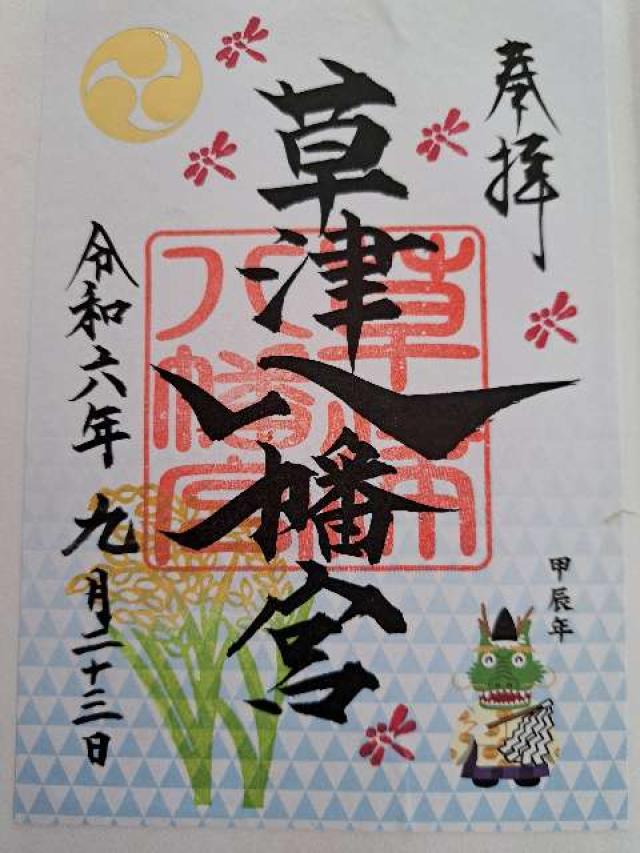 奉拝
草津八幡宮
令和六年 九月二十三日
甲辰年
草津
八幡宮